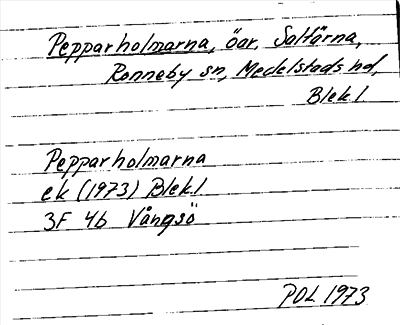 Pepparholmarna, öar, Saltärna,
Ronneby sn, Medelstads hd,
Blek.l
Pepparholmarna
ek (1973) Blek.l
3F 4b Vångsö
POL 1973